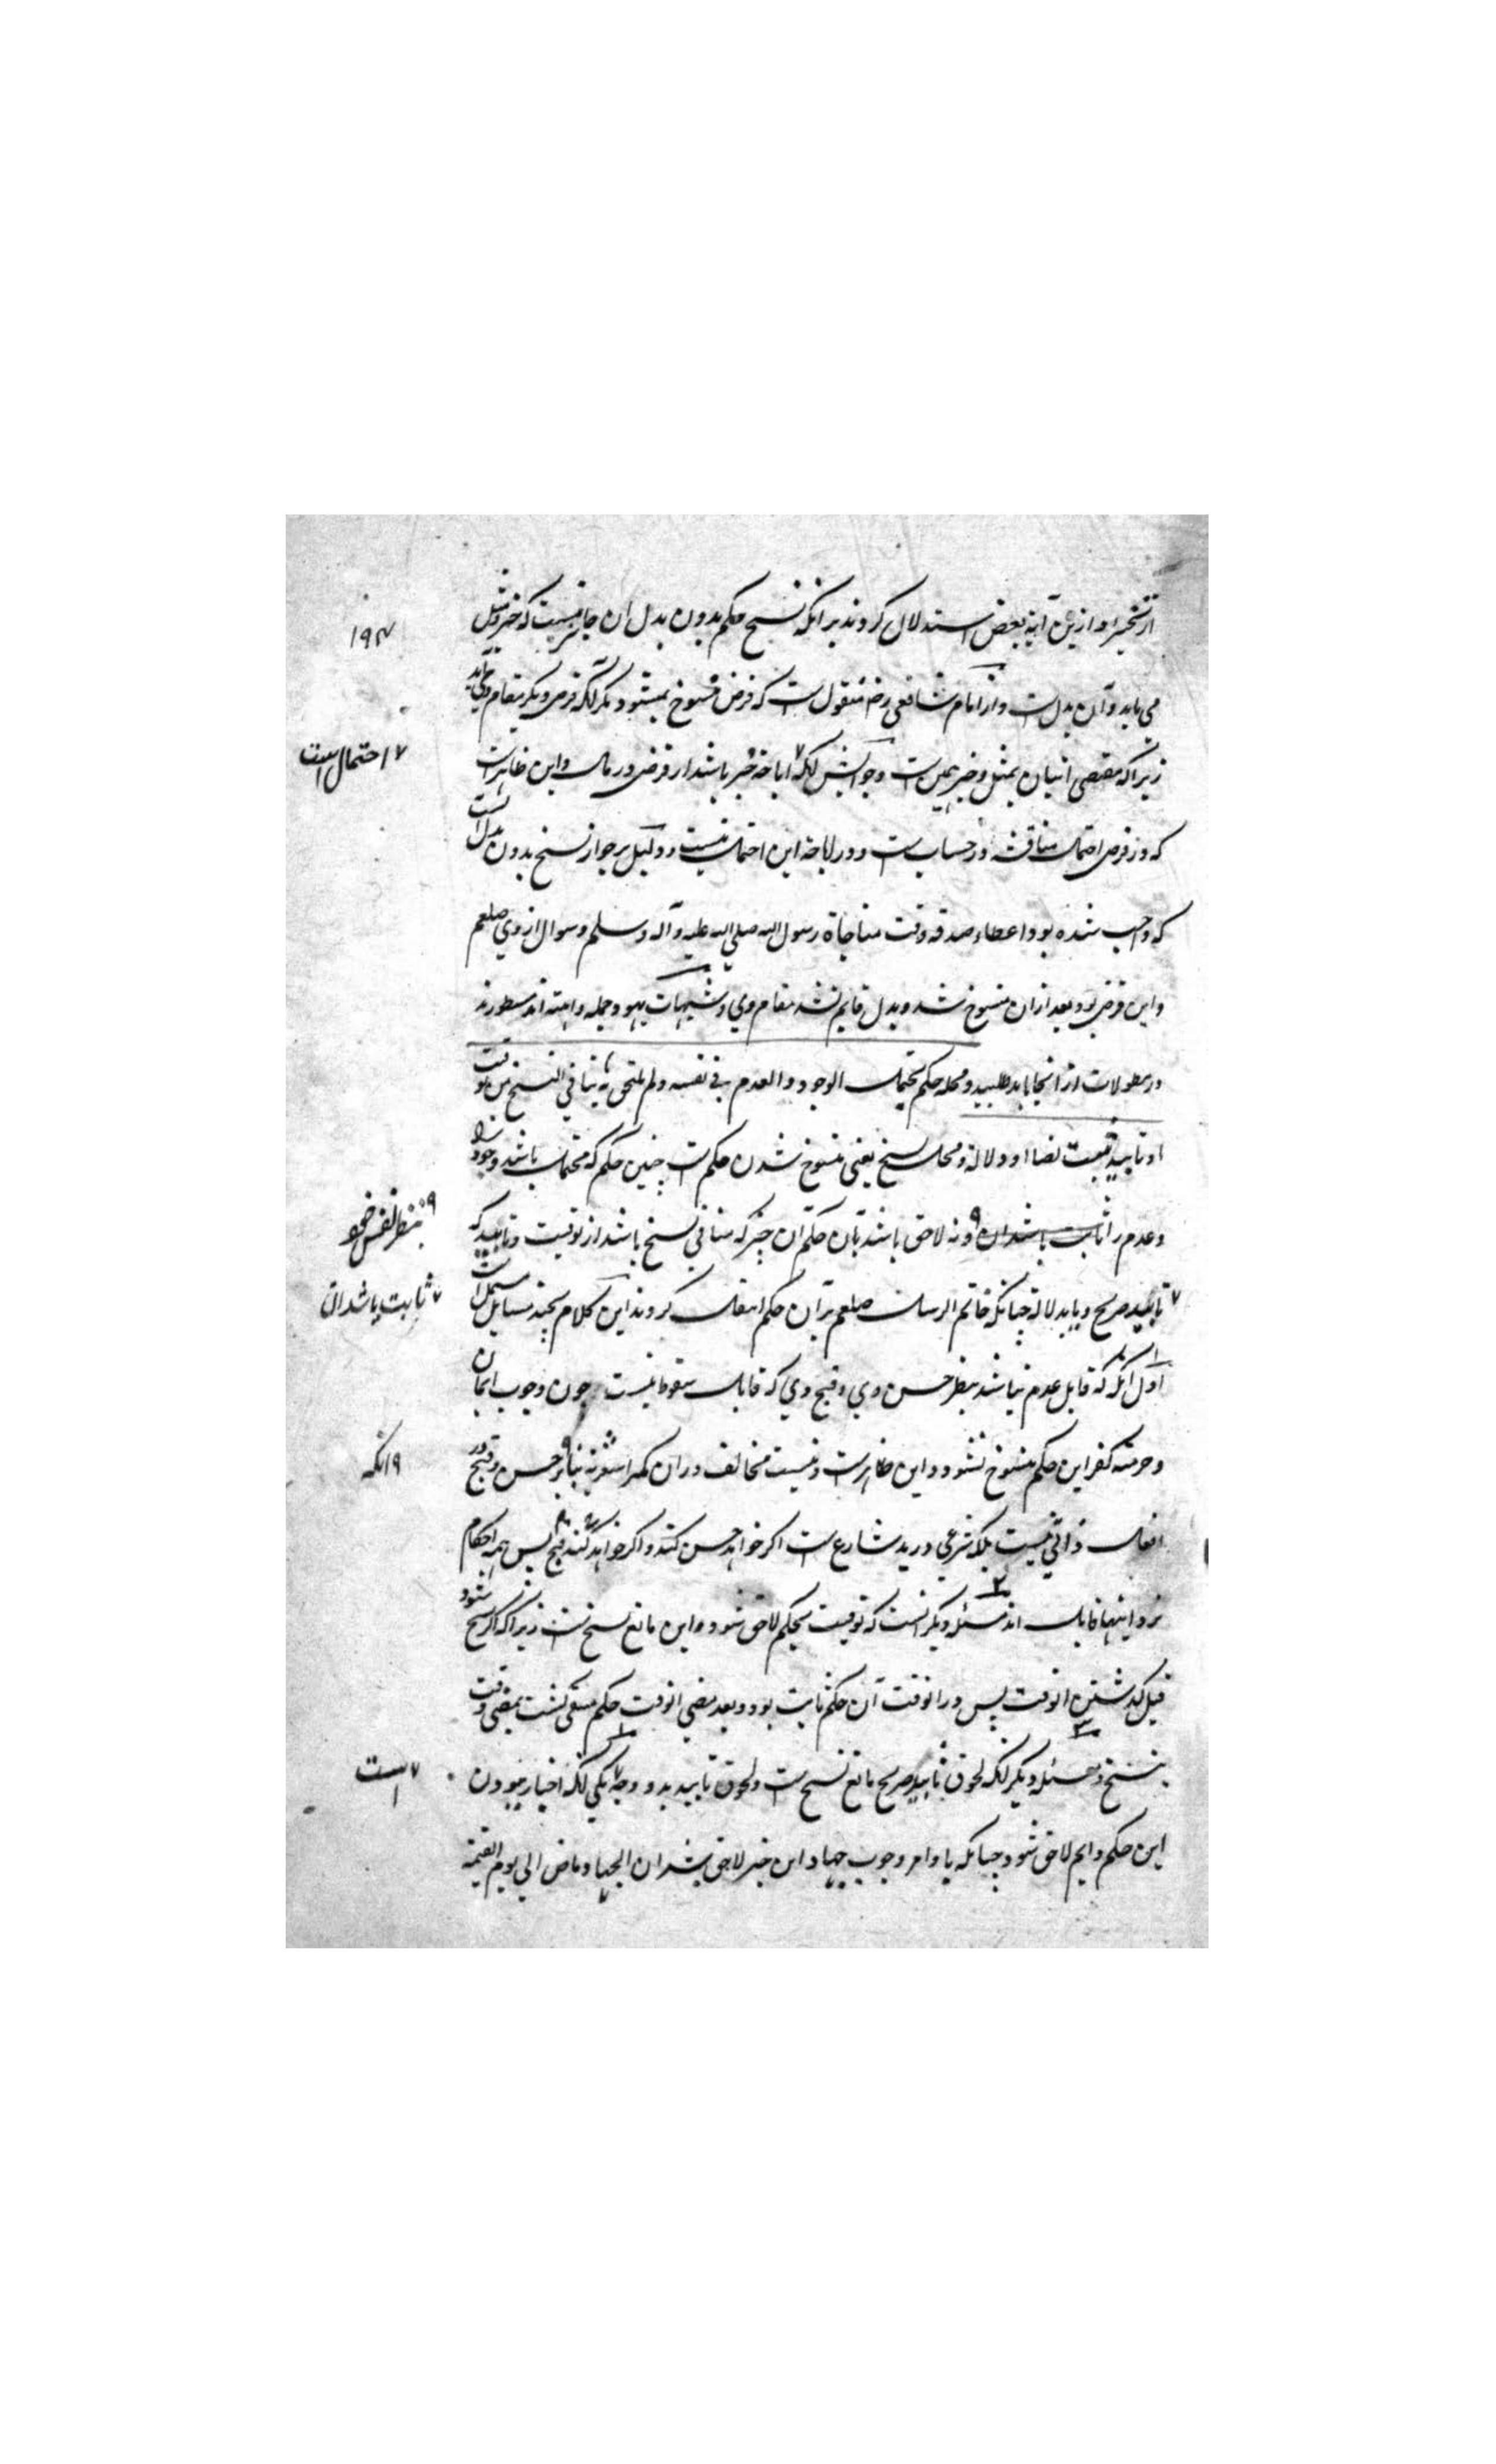 از تخییر و ازین آیة بعض استدلال کردند برانکه نسخ حکم بدون بدل ان جایز نیست که خیر و مثل
۱۹۴
می باید و آن بدل ست و از امام شافعی رضه منقول ست که فرض منسوخ نمیشود مگر انکه فرض دیگر بمقام وی آید
زیراکه مقتضی اتیان بمثل و خیر همین ست و جوابش انکه اباحة خیر باشد از فرض در مال و این ظاهرست
۷ احتمال است
که در فرض احتمال مناقشه در حساب ست و در اباحة این احتمال نیست و دلیل بر جواز نسخ بدون بدل انست
که واجب شده بود اعطاء صدقه وقت مناجاة رسول الله صلی الله علیه و آله و سلم و سوال از وی صلعم
و این فرض بود بعد ازان منسوخ شد و بدل قایم نشد مقام وی و شبهات یهود و جمله مسطورند
در مطولات از انجا باید طلبید و محله حکم یحتمل الوجود و العدم فی نفسه و لم یلتحق به ینافی النسخ من توقیت
او تابید ثبت نصا او دلالة و محل نسخ یعنی منسوخ شدن حکم ست چنین حکم که محتمل باشد وجود را
و عدم را ثابت باشد ان و نه لاحق باشد بآن حکم آن چیز که منافی نسخ باشد از توقیت و تابید که
۹ بنظر نفس خود
۷ ثابت باشد ان
تابید صریح و یا بدلالة چنانکه خاتم الرسل صلعم بر آن حکم انتقال کردند این کلام بچند مسایل مشتمل است
اول انکه که قابل عدم نباشد بنظر حسن وی و قبح وی که قابل سقوط نیست چون وجوب ایمان
و حرمة کفر این حکم منسوخ نشود و این ظاهرست و نیست مخالف دران مگر اشعریة بنابر حسن و قبح در
۹ انکه
افعال ذاتی نیست بلکه شرعی در ید شارع ست اگر خواهد حسن کند و اگر خواهد کند قبیح پس همه احکام
نزد اینها قابل اند مسئله دیگر انست که توقیت بحکم لاحق شود و این مانع نسخ ست زیراکه اگر نسخ شود
قبل گذشتن انوقت پس در انوقت آن حکم ثابت بود و بعد مضی انوقت حکم منتفی گشت بمضی وقت
بنسخ و مسئله دیگر انکه لحوق تابید صریح مانع نسخ ست و لحوق تابید بدو وجه یکی انکه اخبار بودن
۷ است
این حکم دایم لاحق شود چنانکه با وامر وجوب جهاد این خبر لاحق شد ان الجهاد ماض الی یوم القیمة